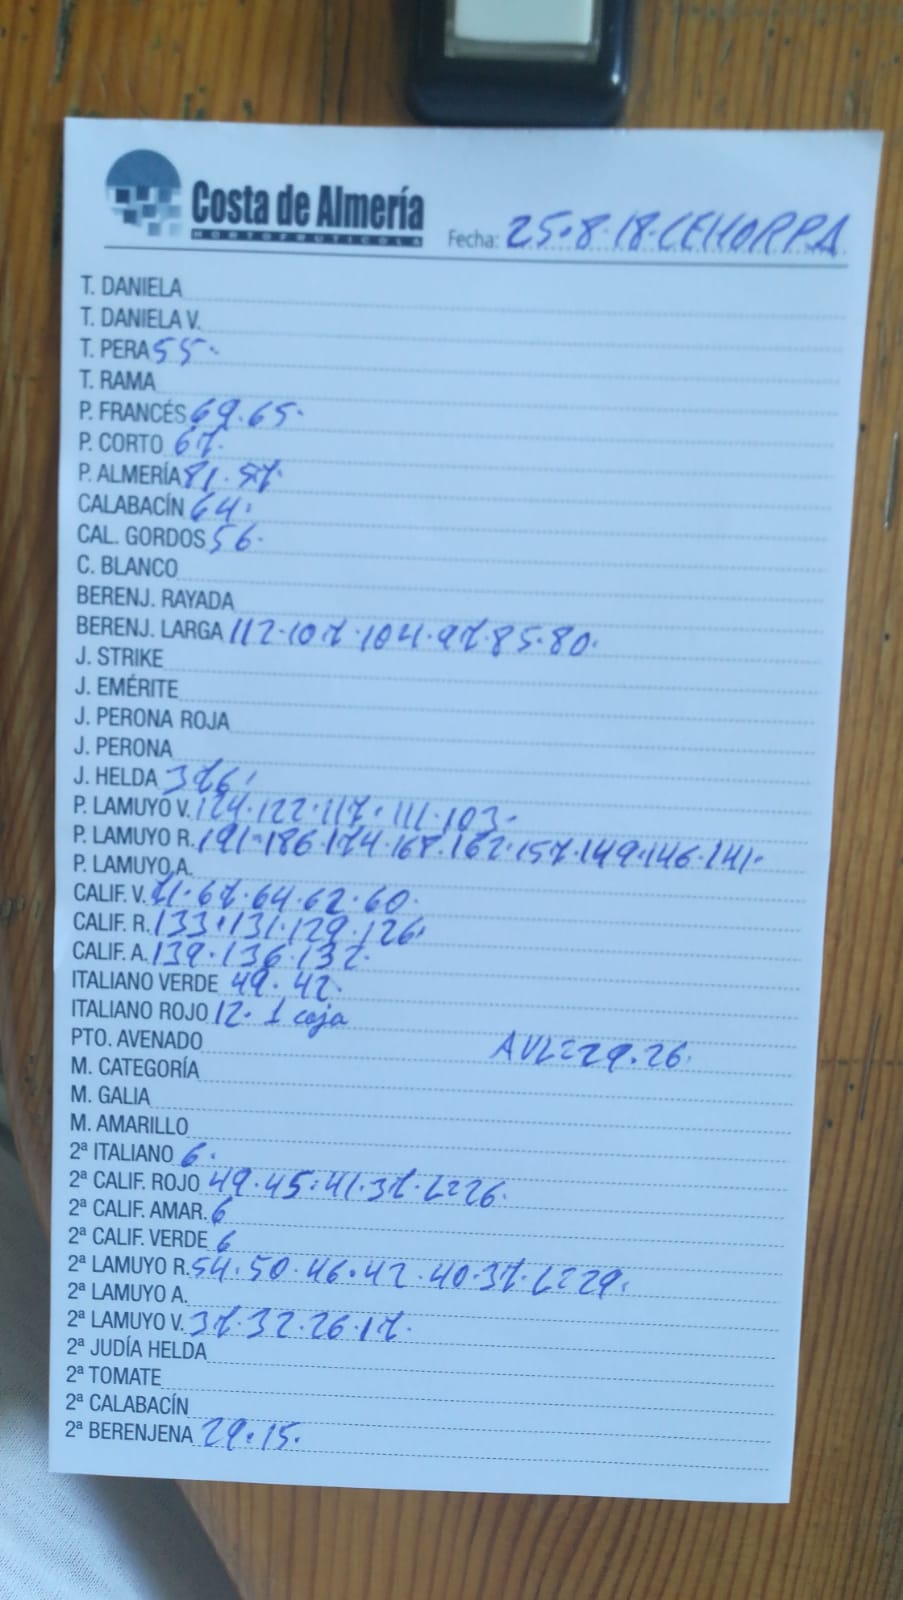 Costa de Almería
HORTOFRUTICOLA
Fecha: 25.8.18.CEHORPA
T. DANIELA
T. DANIELA V.
T. PERA 55.
T. RAMA
P. FRANCÉS 69.65.
P. CORTO 67.
P. ALMERÍA 81.57.
CALABACÍN 64.
CAL. GORDOS 56.
C. BLANCO
BERENJ. RAYADA
BERENJ. LARGA 112.107.104.97.85.80.
J. STRIKE
J. EMÉRITE
J. PERONA ROJA
J. PERONA
J. HELDA 376.
P. LAMUYO V. 124.122.117.111.103.
P. LAMUYO R. 191.186.174.167.162.157.149.146.141.
P. LAMUYO A.
CALIF. V. 71.67.64.62.60.
CALIF. R. 133.131.129.126.
CALIF. A. 139.136.132.
ITALIANO VERDE 49.42.
ITALIANO ROJO 12. 1 caja
PTO. AVENADO AVL=29.26.
M. CATEGORÍA
M. GALIA
M. AMARILLO
2ª ITALIANO 6.
2ª CALIF. ROJO 49.45.41.37.L=26.
2ª CALIF. AMAR. 6
2ª CALIF. VERDE 6
2ª LAMUYO R. 54.50.46.42.40.37.L=29.
2ª LAMUYO A.
2ª LAMUYO V. 37.32.26.17.
2ª JUDÍA HELDA
2ª TOMATE
2ª CALABACÍN
2ª BERENJENA 29.15.